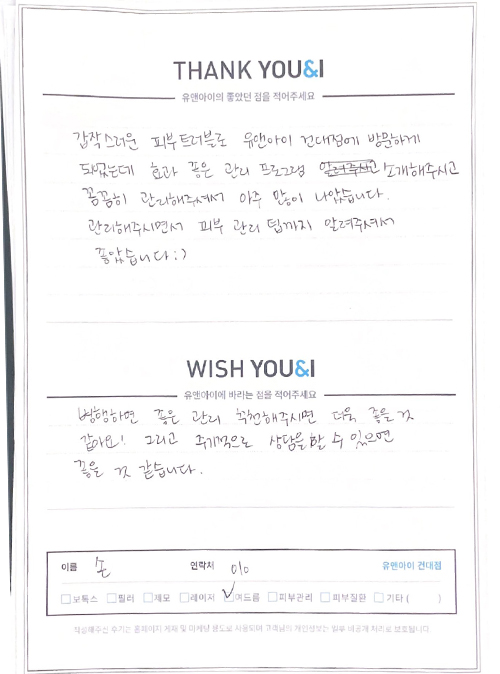 THANK YOU&I
유앤아이의 좋았던 점을 적어주세요
갑작스러운 피부트러블로 유앤아이 건대점에 방문하게
되었는데 효과 좋은 관리 프로그램 소개해주시고
꼼꼼히 관리해주셔서 아주 많이 나았습니다.
관리해주시면서 피부 관리 팁까지 알려주셔서
좋았습니다:)
WISH YOU&I
유앤아이에 바라는 점을 적어주세요
병행하면 좋은 관리 추천해주시면 더욱 좋을 것
같아요! 그리고 주기적으로 상담을 할 수 있으면
좋을 것 같습니다.
이름 손 연락처 010 유앤아이 건대점
보톡스 필러 제모 레이저 여드름 피부관리 피부질환 기타 ( )
작성해주신 후기는 홈페이지 게재 및 마케팅 용도로 사용되며 고객님의 개인정보는 일부 비공개 처리로 보호됩니다.